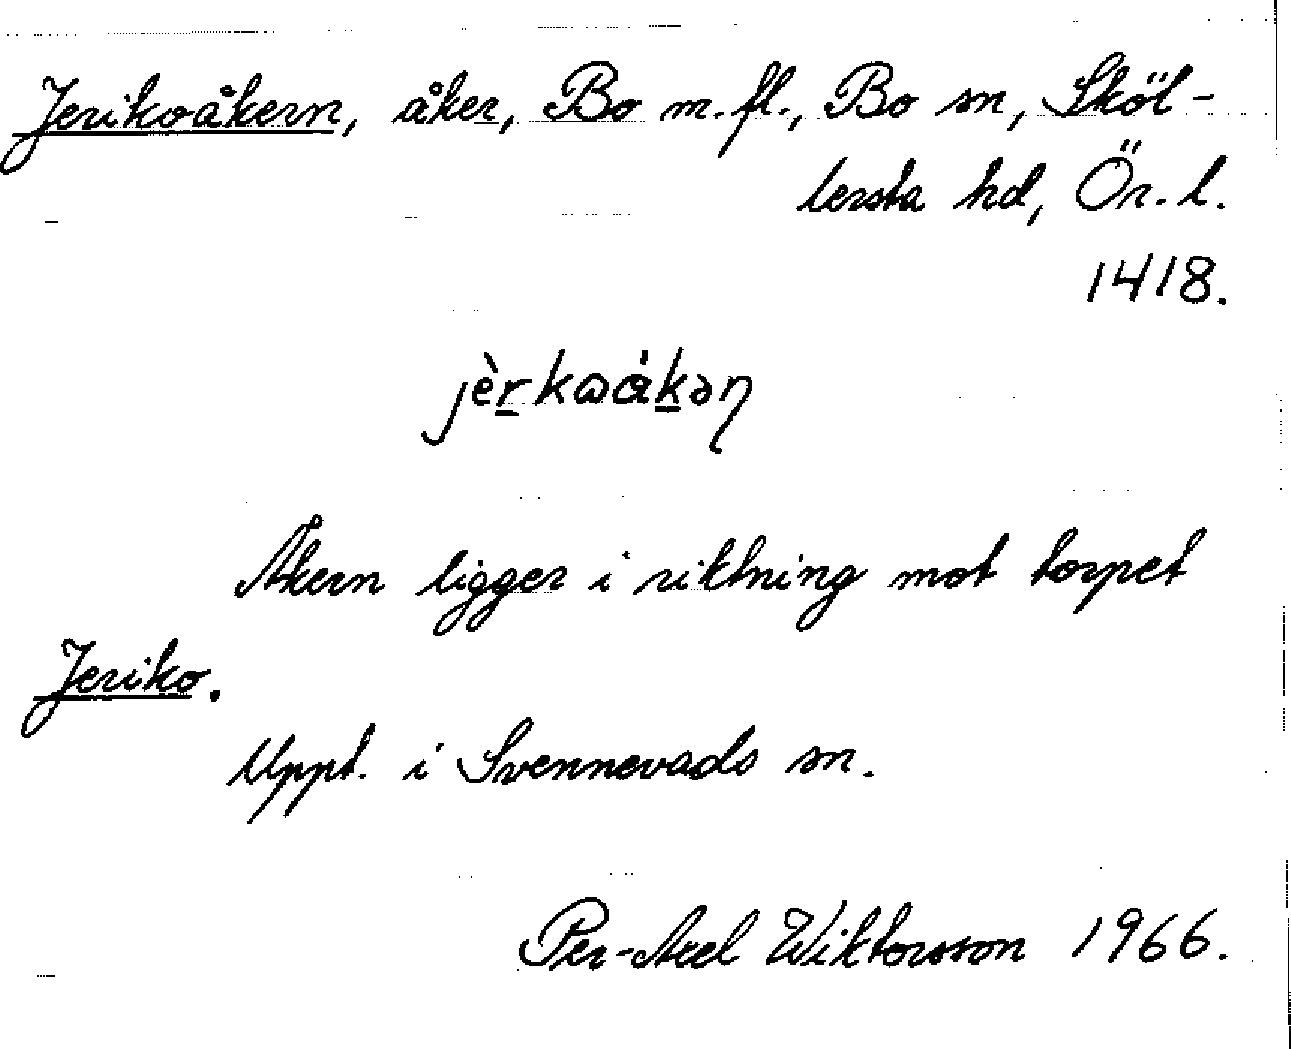 Jerikoåkern, åker, Bo m.fl., Bo sn, Sköl-
lersta hd, Ör. l.
1418.
jèr̲kɷɑ́k̲əη
Åkern ligger i riktning mot torpet
Jeriko.
Uppt. i Svennevads sn.
Per-Axel Wiktorsson 1966.